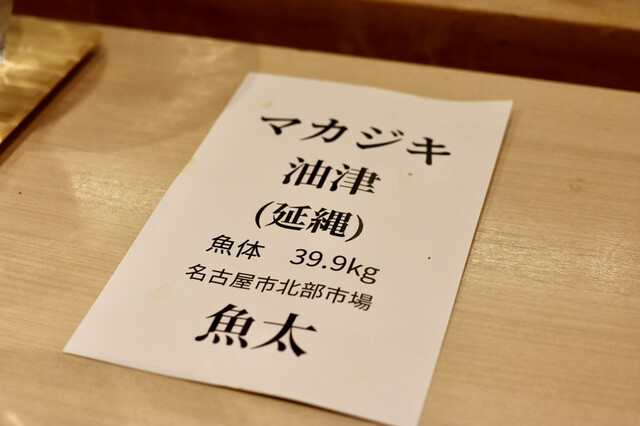 マカジキ
油津
(延縄)
魚体　39.9kg
名古屋市北部市場
魚太